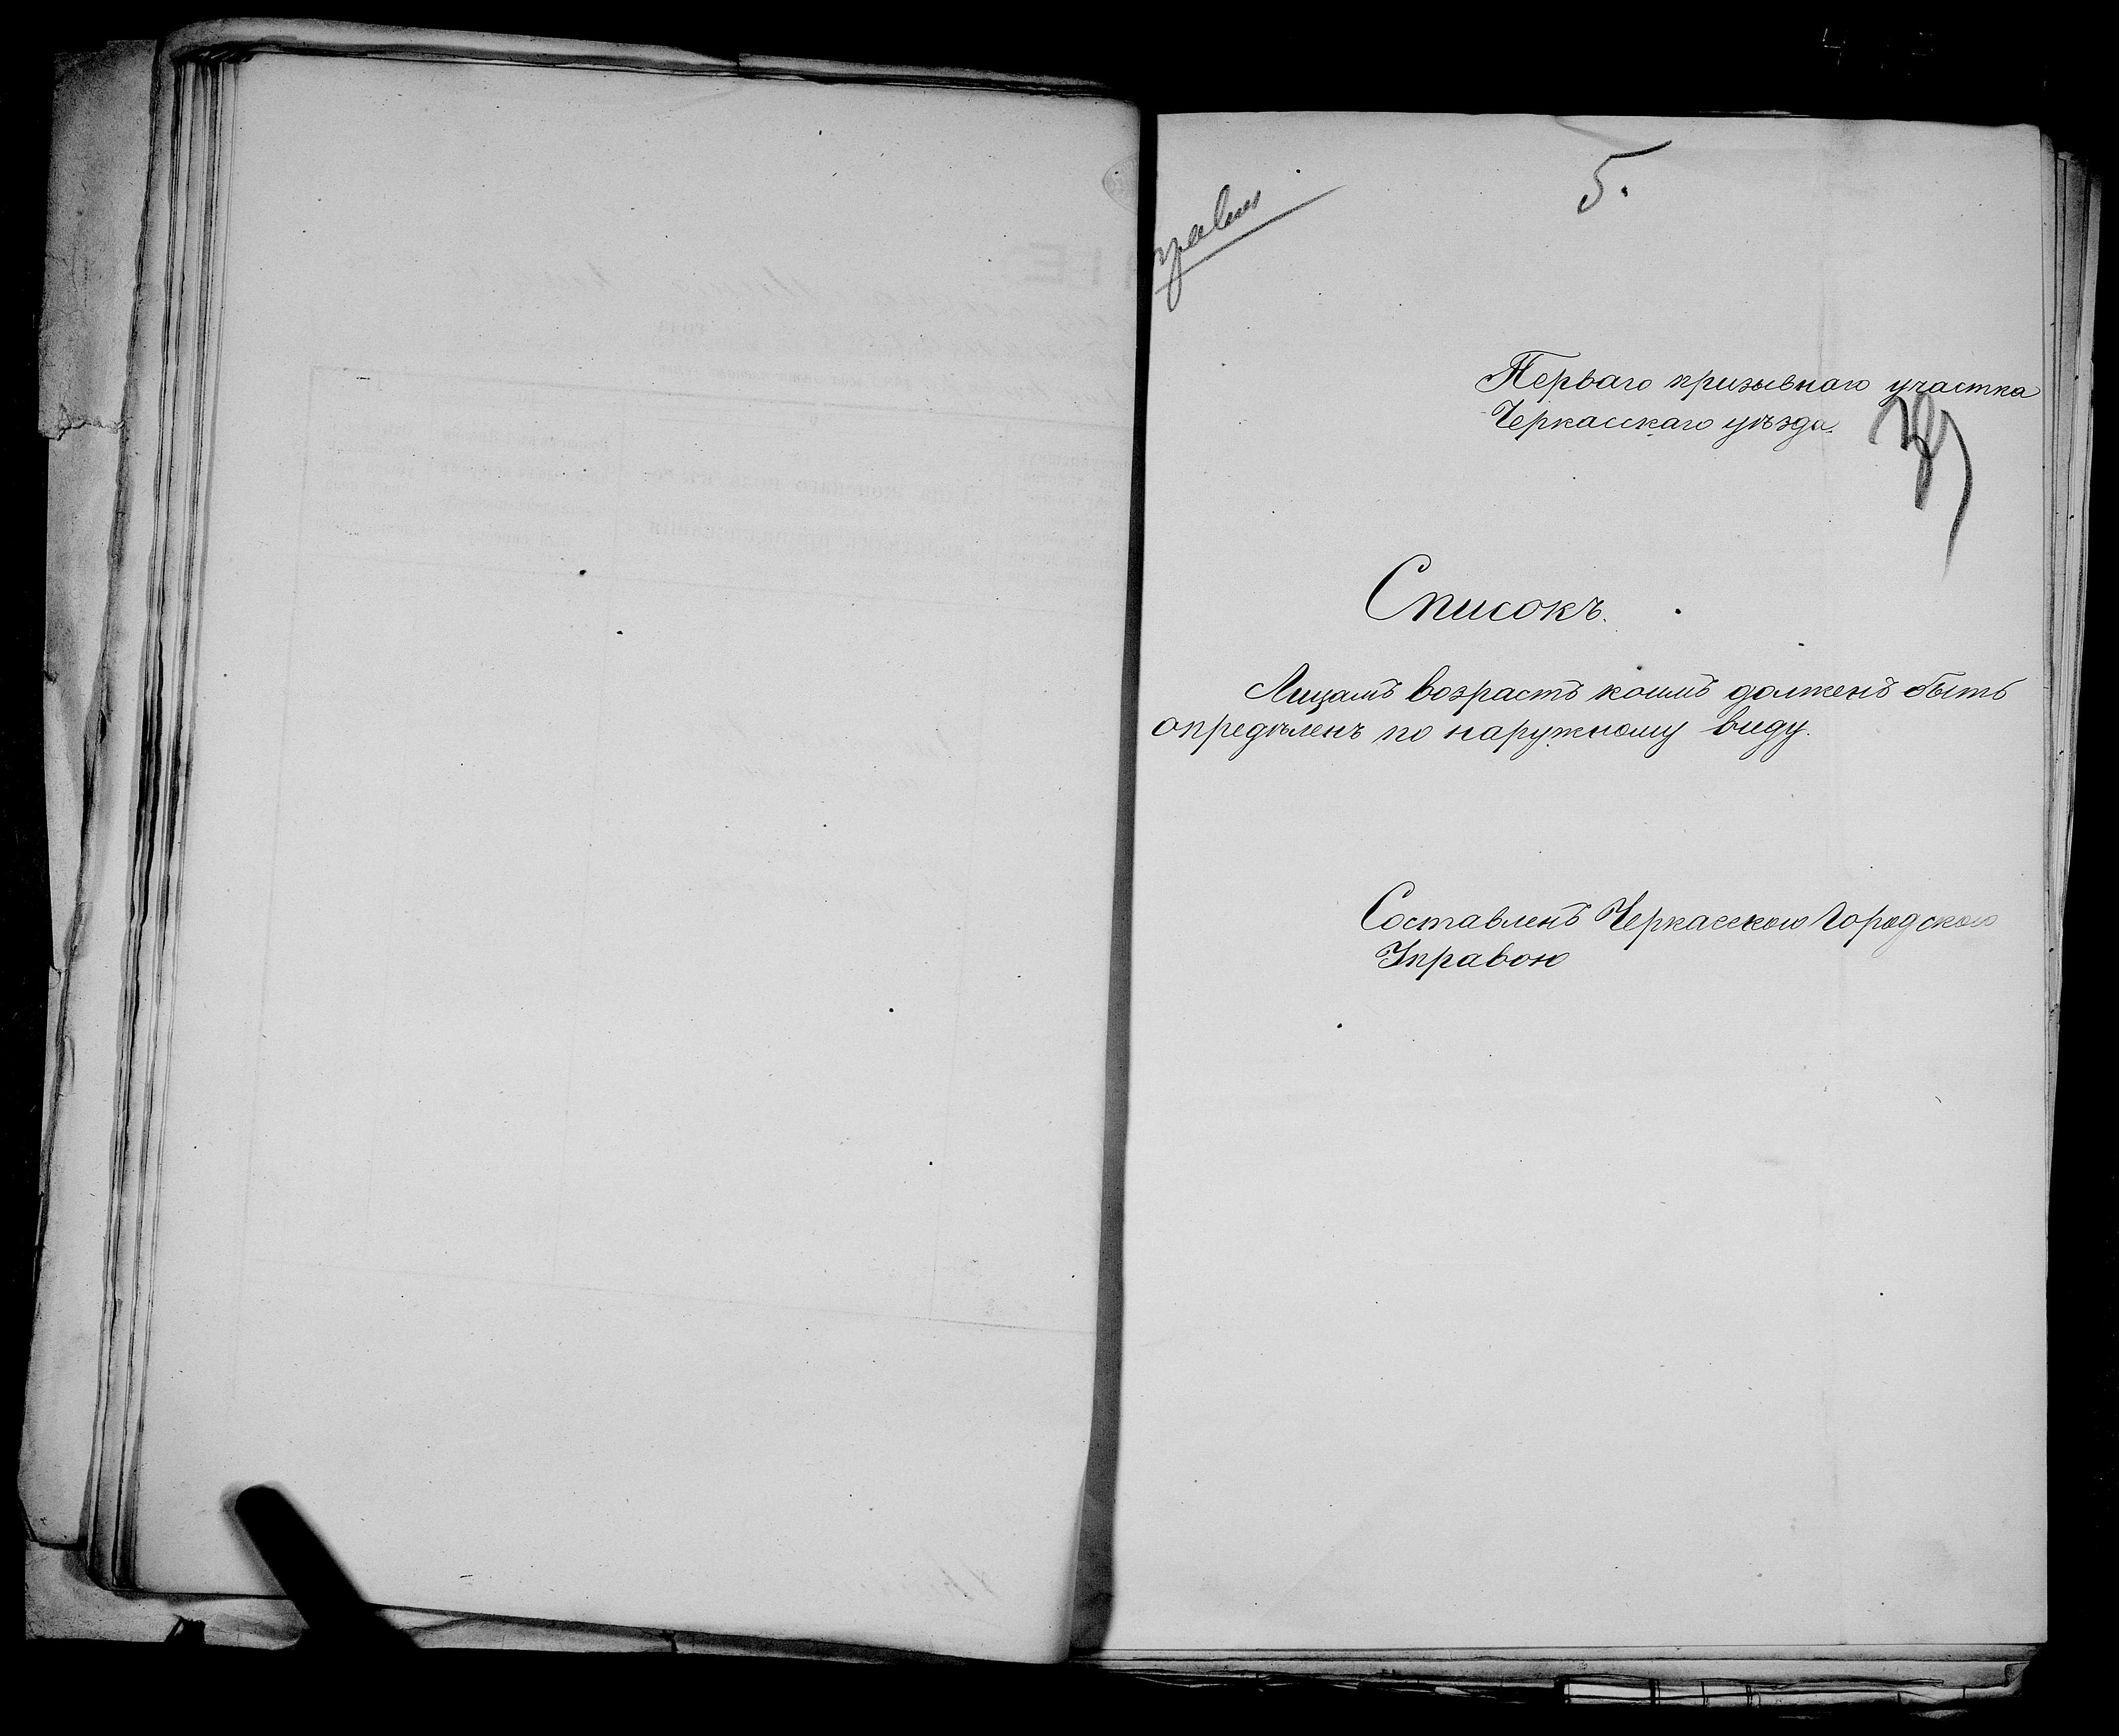 5.
Перваго призывнаго участка
Черкасскаго уѣзда.
Списокъ.
Лицамъ возрастъ коимъ долженъ быть
опредѣленъ по наружному виду.
Составленъ Черкасскою Городскою
Управою